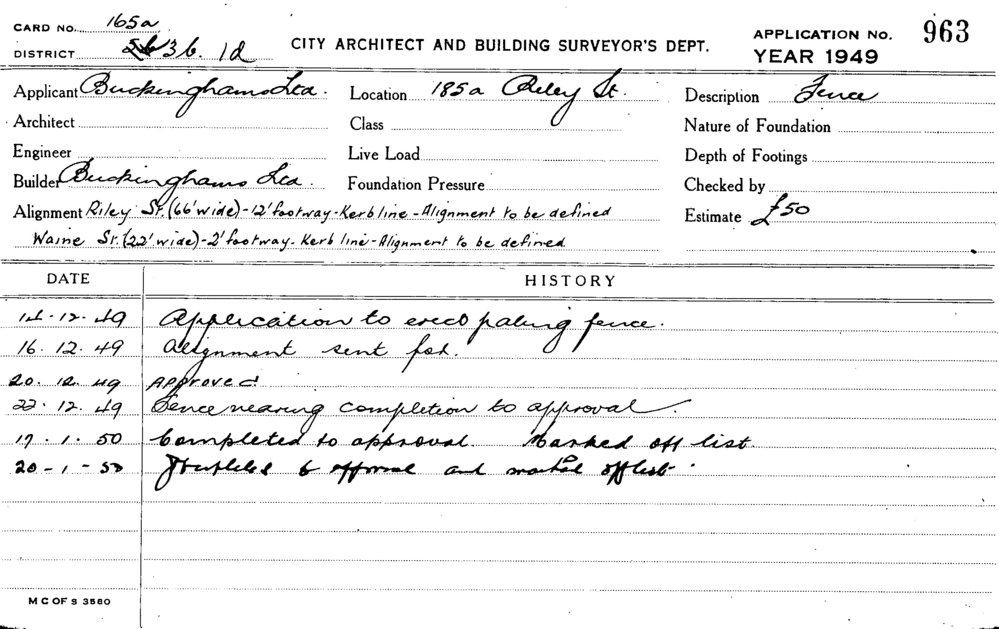 CARD No. 165a
DISTRICT 36. 1d
CITY ARCHITECT AND BUILDING SURVEYOR'S DEPT.
APPLICATION No. 963
YEAR 1949
Applicant Buckinghams Ltd. Location 185a Riley St. Description Fence
Architect Class Nature of Foundation
Engineer Live Load Depth of Footings
Builder Buckinghams Ltd. Foundation Pressure Checked by
Alignment Riley St. (66' wide) - 12' footway - Kerb line - Alignment to be defined Estimate £50
Waine St. (22' wide) - 2' footway - Kerb line - Alignment to be defined
DATE HISTORY
14.12.49 Application to erect paling fence.
16.12.49 Alignment sent for.
20.12.49 Approved
22.12.49 Fence nearing completion to approval.
17.1.50 Completed to approval. Marked off list.
20-1-50 to approval and marked off list.
M C OF S 3580